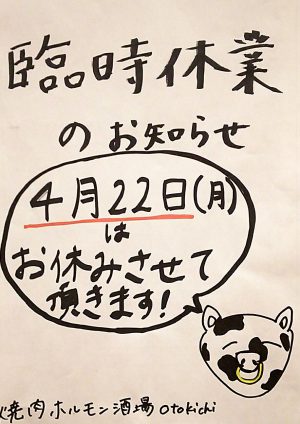 臨時休業
のお知らせ
4月22日(月)
は
お休みさせて
頂きます!
焼肉ホルモン酒場 otokichi